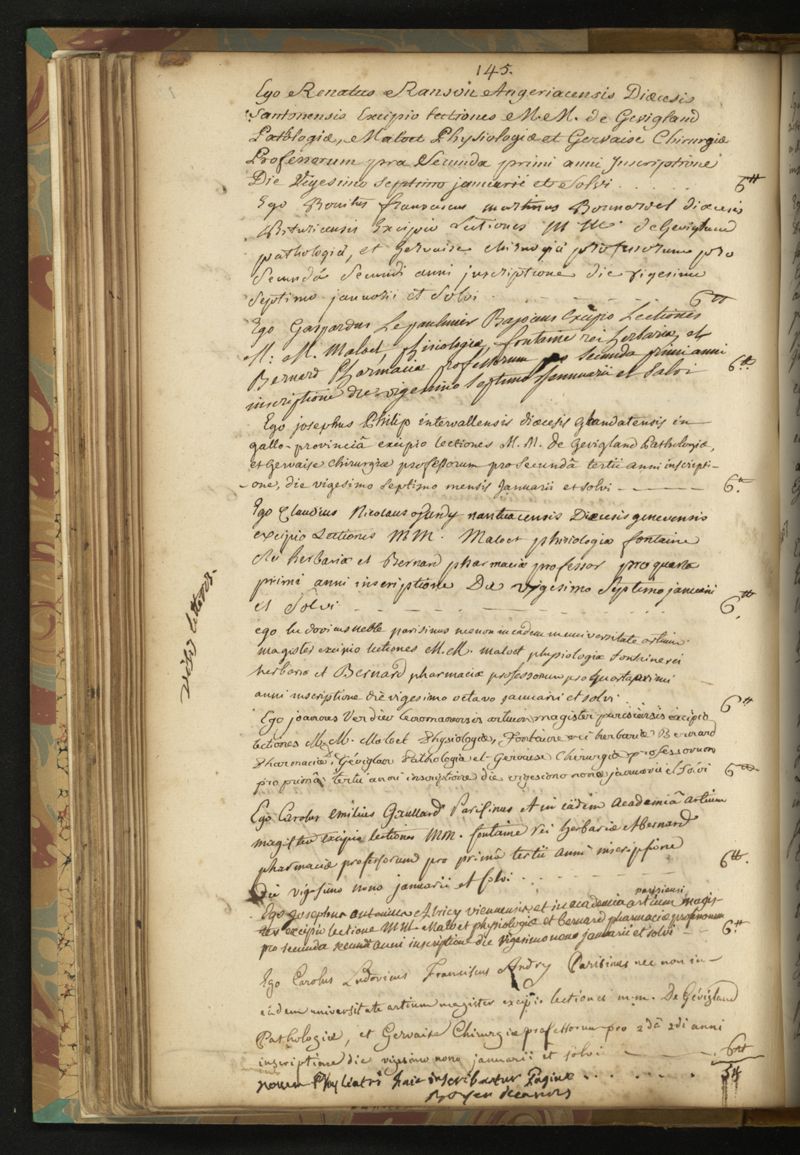 145.
Ego Renatus Ransoii Angeriacensis Diœcesis
Santonensis Excipio lectiones M. M. de Gevigland
Pathologiæ, Maloet Physiologiæ et Gervaise Chirurgiæ
Professorum pro Secunda primi anni Inscriptione
Die Vigesimo septimo januarii et Solvi . . . . . 6tt
Ego Bonitus franciscus martinus Bonnardel diœcesis
Bituricensis Excipio Lectiones M M. de Gevigland
pathologiæ, et gervaise chirurgiæ professorum pro
Secundâ Secundi anni inscriptione die vigesimo
septimo januarii et Solvi . . . . 6tt
Ego Gaspardus Lepaulmier Bajocæus Excipio Lectiones
M: M. Maloet, phisiologiæ, fontaine rei herbariæ, et
Bernard Pharmaciæ professorum pro secunda primi anni
inscriptione die vigesimo septimo Januarii et Salvi 6tt.
Ego josephus Philip intervallensis diœcesis glandatensis in
gallo-provinciâ excipio lectiones M. M. de Gevigland Pathologiæ,
et Gervaise chirurgiæ professorum pro Secundâ tertii anni inscripti-
-one, die vigesimo septimo mensis Januarii et solvi - - - - 6tt.
Ego Claudius Nicolaus nantuacensis Diœcesis genevensis
excipio Lectiones MM. Maloet phisiologiæ fontaine
Rei herbariæ et Bernard pharmaciæ professor pro quarta
primi anni inscriptione Die vigesimo Septimo januarii
et Solvi - - - - 6tt.
vide litteras.
ego ludovicus neble parisinus necnon in eadem universitate artium
magister excipio lectiones M. M. maloet physiologiæ fontaine rei
herbariæ et Bernard pharmaciæ professorum pro quarta primi
anni inscriptione die vigesimo octavo januarii et solvi . . 6tt
Ego joannes Verdier Cenomanensis artium magister parisiensis excipio
lectiones M. M. Maloet Physiologiæ, Fontaine rei herbariæ Bernard
Pharmaciæ, Gévigland Pathologiæ et Gervaise Chirurgiæ professorum
pro primâ tertii anni inscriptione die vigesimo nono januarii et Solvi 6tt
Ego Carolus emilius Gaullard Parisinus et in eâdem Academiâ artium
magister excipio lectiones MM. fontaine rei herbariæ et bernard
pharmaciæ professorum pro primâ tertii anni inscriptione
Die vigesimo nono januarii et solvi . . . . 6tt.
Ego josephus antonius Alricy viennensis et in academia parisiensi artium magis-
ter excipio lectiones MM. Maloet physiologiæ et bernard pharmaciæ professorum
pro secunda secundi anni inscriptione die vigesimo nono januarii et solvi - - 6tt
Ego Carolus Ludovicus Franciscus Andry Parisinus nec non in
eâdem universitate artium magister excipio lectiones m.m. De Gévigland
Pathologiæ, et Gervaise Chirurgiæ professorum pro 2dâ 2di anni
inscriptione die vigesimo nono januarii et solvi - - - 6tt
novem Phyliatri huic inscribuntur Paginæ . . . . . . . 54
Boyer decanus